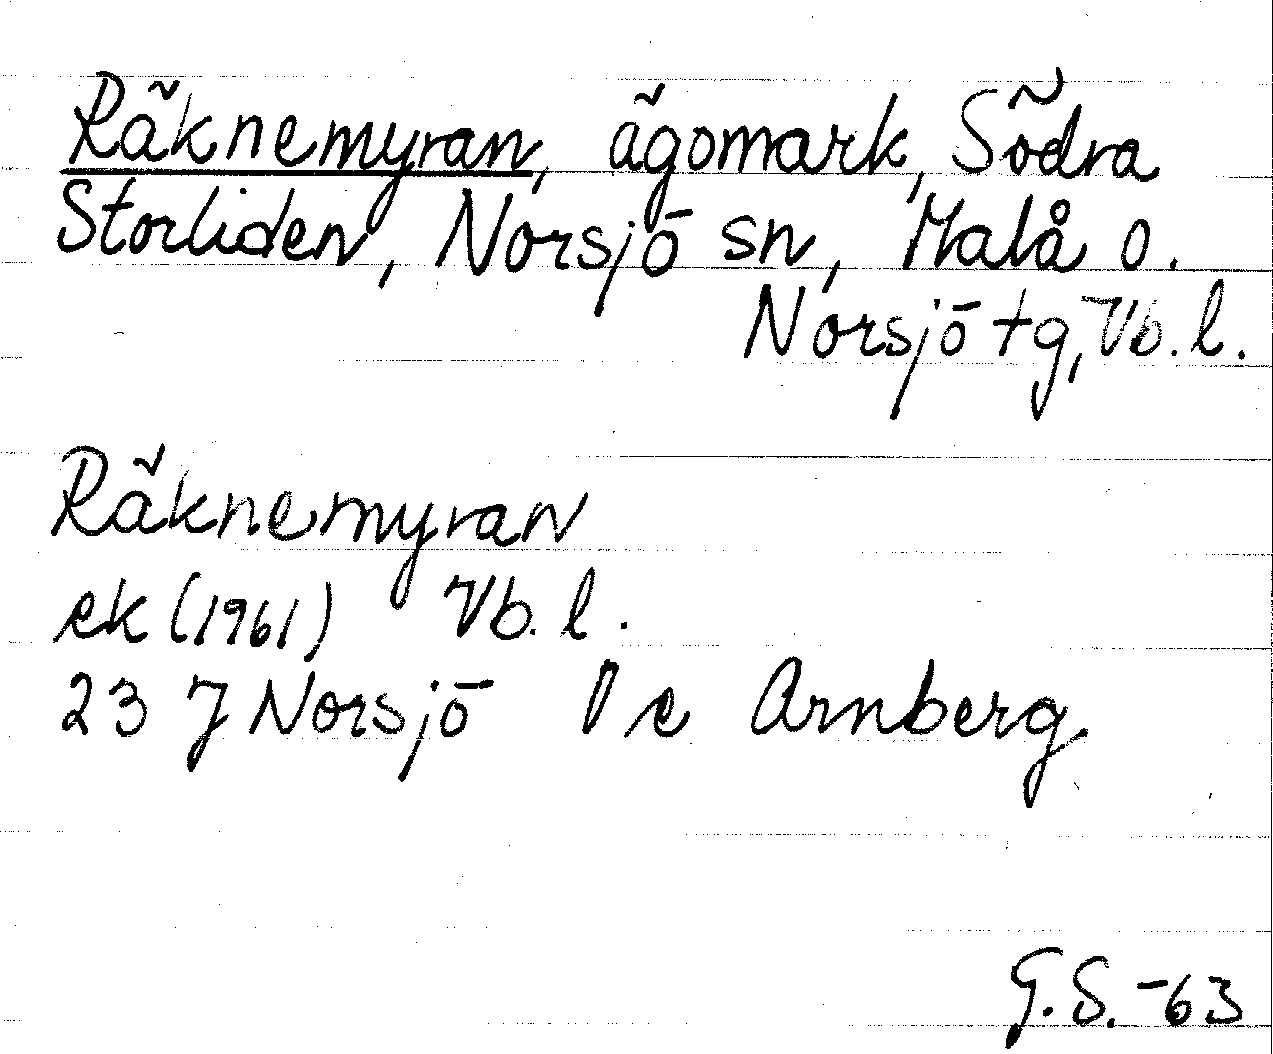 Räknemyran, ägomark, Södra
Storliden, Norsjö sn, Malå o.
Norsjö tg, Vb. l.
Räknemyran
ek (1961) Vb. l.
23 J Norsjö I c Arnberg.
G.S. -63